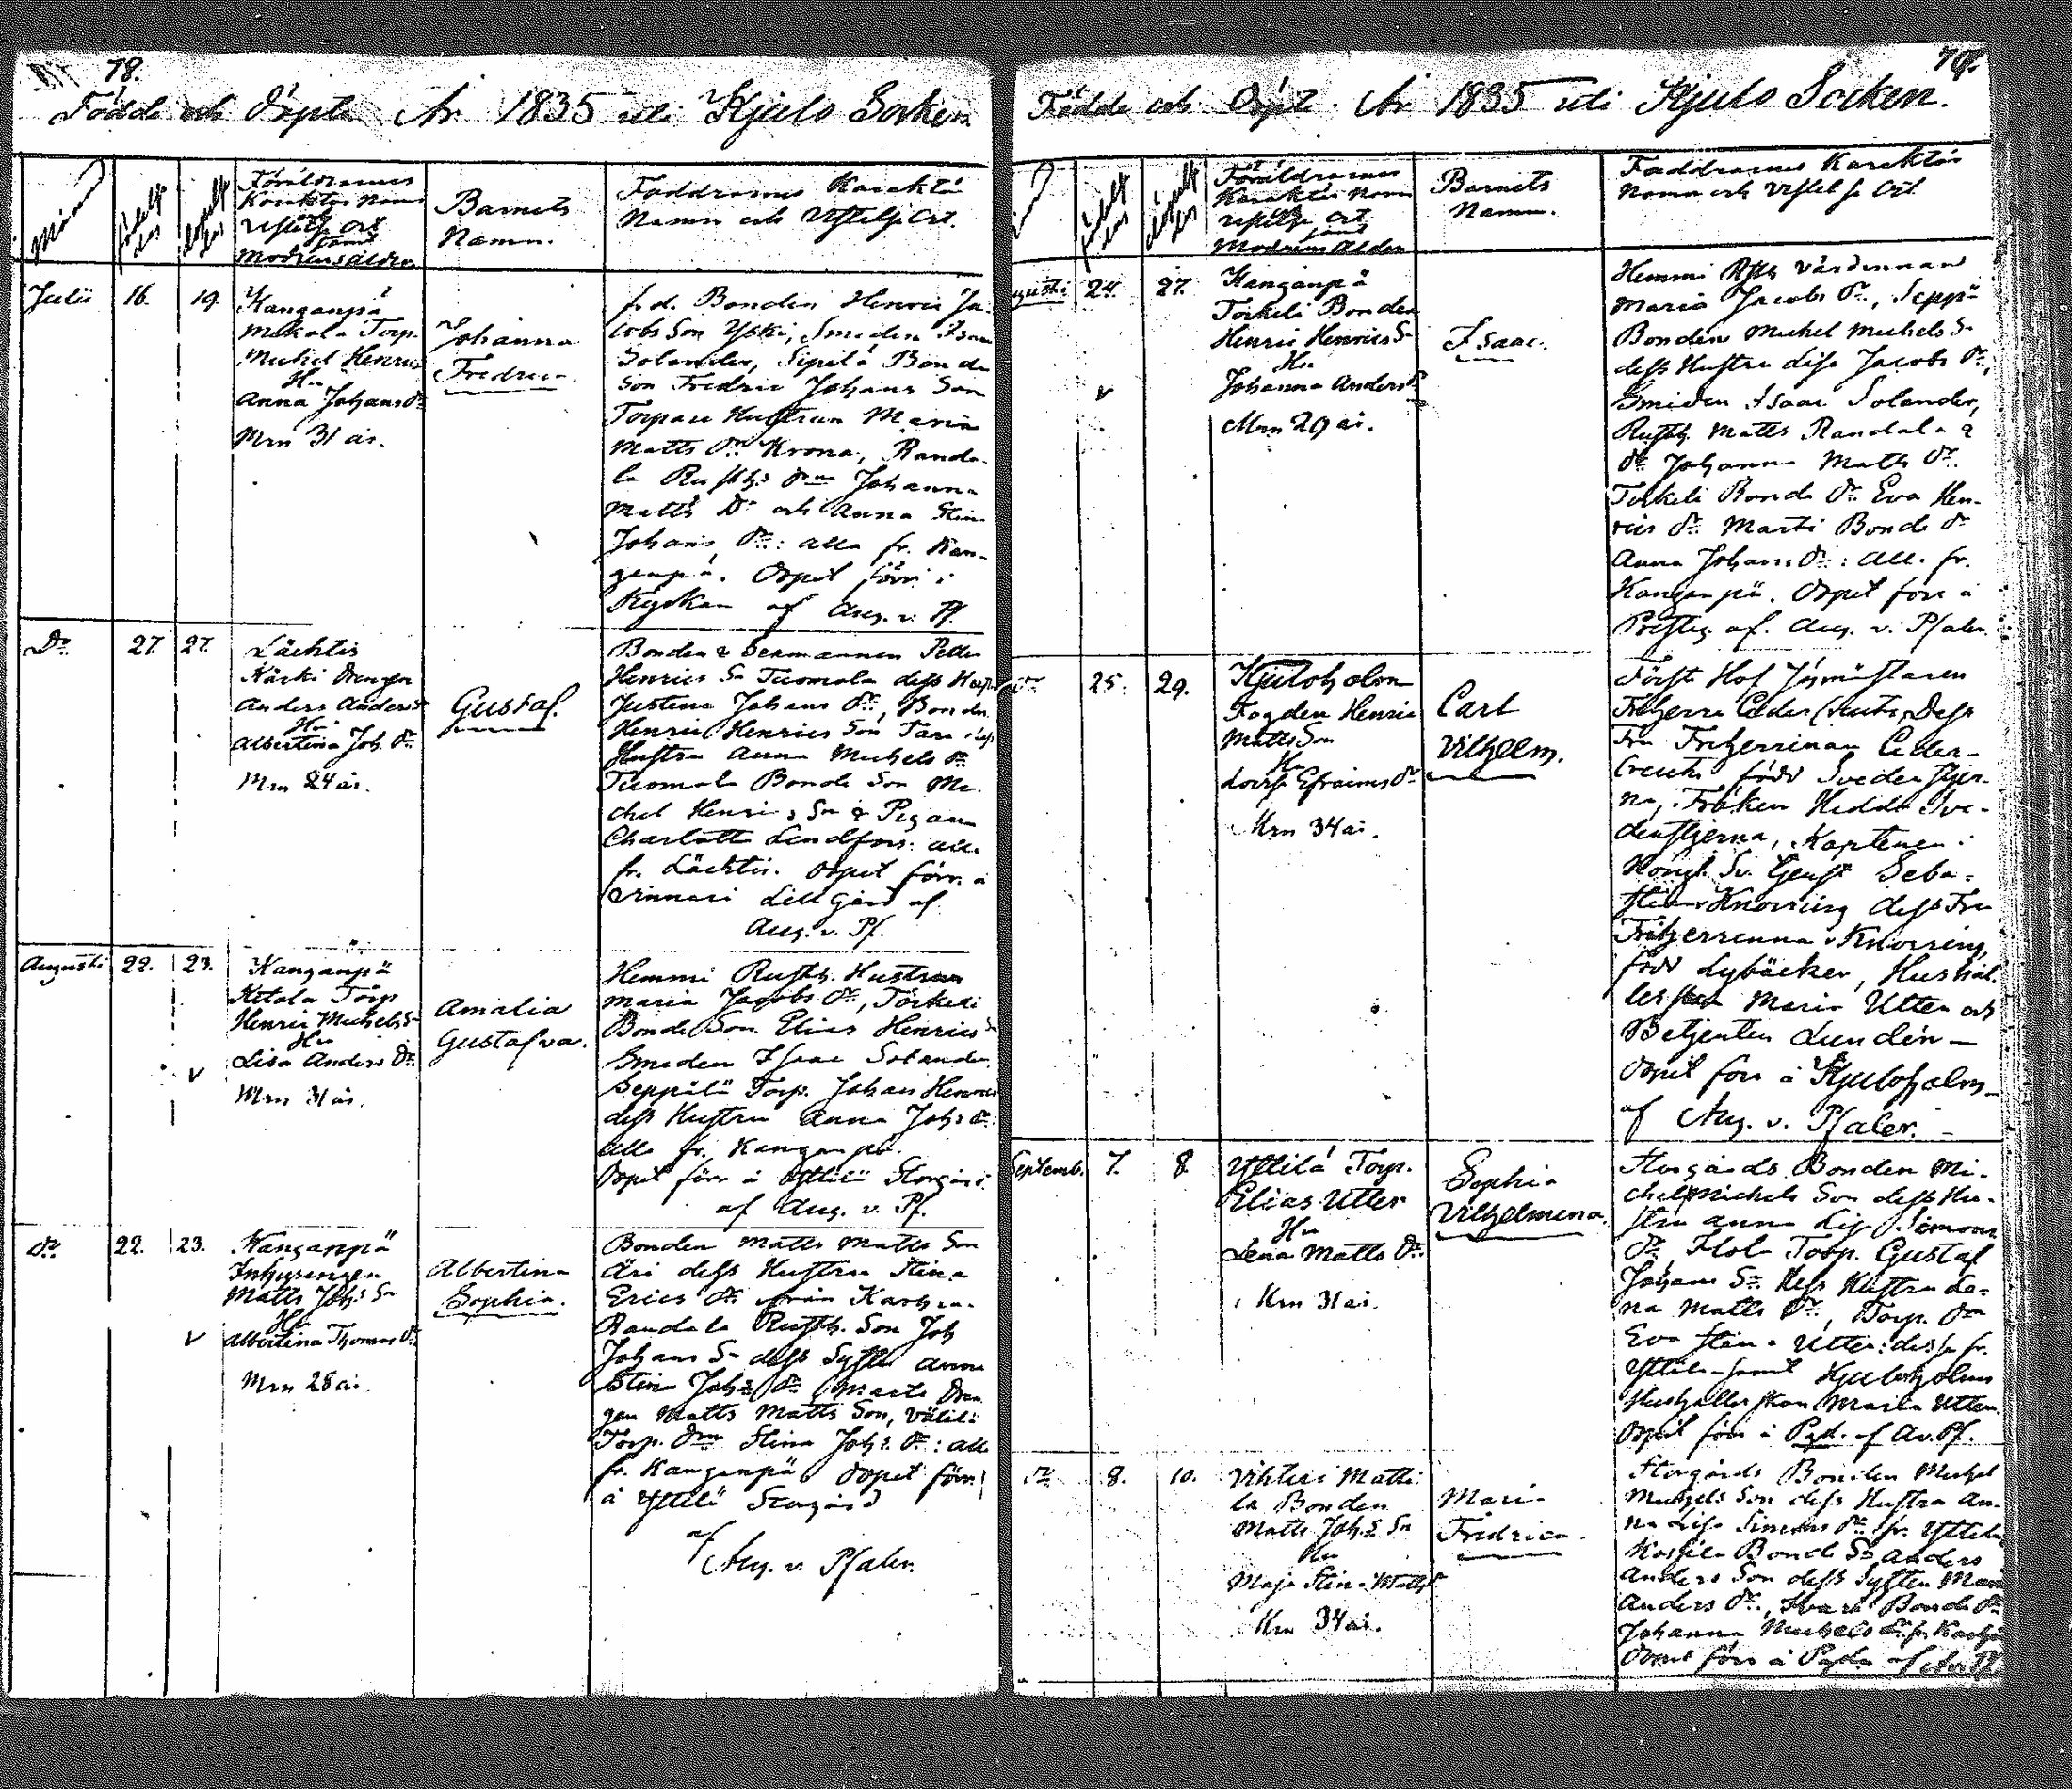 78.
Födde och Döpte År 1835 uti Kjulo Socken
Månad
födelse
dag
döpelse
dag
Föräldrarnes
Karakter Namn
Vistelse Ort
samt
Modrens ålder
Barnets
Namn.
Faddrarnes Karakter
Namn och Vistelse Ort.
Julii 16. 19.
Kanganpä
Mickola Torp.
Michel Henrics
Hu
Anna Johans Dr
Mrn 31 år.
Johanna
Fredrica.
fr. d. Bonden Henric Ja-
cobs Son Yski, Smeden Isaac
Solander, Sipilä Bonde
Son Fredric Johans Son
Torpare Hustrun Maria
Matts Dr Krona, Randa-
la Rusth: Drn Johanna
Matts Dr och Anna Stin
Johans Dr: alla fr. Kan-
ganpä. Döpt förr. i
Kyrkan af Aug. v. Pf.
Do 27. 27.
Lächtis
Kärki Drengen
Anders Anders
Hu
Albertina Joh. Dr
Mrn 24 år.
Gustaf.
Bonden & Sexmannen Petter
Henrics Sn Tuomola dess Hust
Justina Johans Dr, Bonden
Henric Henrics Son
Hustru Anna Michels Dr
Tuomola Bonde Son Mi-
chel Henrics Sn & Pigan
Charlotta Lindfors: alla
fr. Lächtis. Döpt förr. å
Vinnari Lill Gård af
Aug. v. Pf.
Augusti 22. 23.
Kanganpä
Ketola Torp
Henric Michels S
Hu
Lisa Anders Dr
Mrn 31 år.
Amalia
Gustafva.
Hemmi Rusth. Hustrun
Maria Jacobs Dr, Torkeli
Bonde Son Elias Henrics S
Smeden Isaac Solander
Seppälä Torp. Johan Henrics
dess Hustru Anna Johs Dr
alla fr. Kanganpä.
Döpt förr å Yttilä Storgård
af Aug. v. Pf.
Do 22. 23.
Kanganpä
Inhysingen
Matts Johs Sn
Hu
Albertina Thomas Dr
Mrn 28 år.
Albertina
Sophia.
Bonden Matts Matts Son
Äri dess Hustru Stina
Erics Dr från
Randala Rusth. Son Joh
Johans Sn dess Syster Anna
Stin Johs Dr Marti Dren
gen Matts Matts Son, Välilä
Torp. Drn Stina Johs Dr: alla
fr. Kanganpä, Döpt förr
å Yttilä Storgård
af
Aug. v. Pfaler.
79.
Födde och Döpte År 1835 uti Kjulo Socken.
födelse
dag
döpelse
dag
Föräldrarnes
Karakter Namn
Vistelse Ort
samt
Modrens Ålder
Barnets
Namn.
Faddrarnes Karakter
Namn och Vistelse Ort
Augusti 24. 27.
Kanganpä
Torkeli Bonden
Henric Henrics S
Hu
Johanna Anders Dr
Mrn 29 år.
Isaac.
Hemmi Rsths Värdinnan
Maria Jacobs Dr, Seppä
Bonden Michel Michels S
dess Hustru Lisa Jacobs Dr,
Smeden Isaac Solander,
Rusth. Matts Randala &
Dr Johanna Matts Dr
Torkeli Bonde Dr Eva Hen-
rics Dr Marti Bonde Dr
Anna Johans Dr: All. fr.
Kanganpä. Döpt förr å
Prestg. af. Aug. v. Pfaler.
Do 25. 29.
Kjuloholm
Fogden Henric
Matts Son
Hu
Lovisa Efraims Dr
Mrn 34 år.
Carl
Vilhelm.
Förste Hof Jägmästaren
Friherre Cedercreutz, Dess
Fru Friherrinan Ceder-
creutz, född Svedenstjer-
na, Fröken Hedda Sve-
denstjerna, Kaptenen i
Kongl. Sv. Tjenst Seba-
stian v Knorring dess Fru
Friherrinna v Knorring,
född Lybäcker, Hushål-
lerskan Maria Utter och
Betjenten Lundén —
Döpt förr å Kjuloholm
af Aug. v. Pfaler. —
Septemb. 7. 8
Yttilä Torp.
Elias Utter
Hu
Lena Matts Dr
Mrn 31 år.
Sophia
Vilhelmina.
Storgårds Bonden Mi-
chel Michels Son dess Hu-
stru Anna Lis Simons
Dr Torp. Gustaf
Johans Sn dess Hustru Le-
na Matts Dr, Torp. Drn
Eva Stina Utter: dessa fr.
Yttilä — samt Kjuloholms
Hushållerskan Maria Utter.
Döpt förr å Pgd. af A.v.Pf.
Do 8. 10.
Vihtari Matti-
la Bonden
Matts Johs Sn
Hu
Maja Stina Matts Dr
Mrn 34 år.
Maria
Fredrica.
Storgårds Bonden Michel
Michels Son dess Hustru An-
na Lisa Simons Dr fr. Yttilä
Bonde Sn Anders
Anders Son dess Syster Maria
Anders Dr, Bonde Dr
Johanna Michels Dr fr.
Döpt förr å af A.v.Pf.